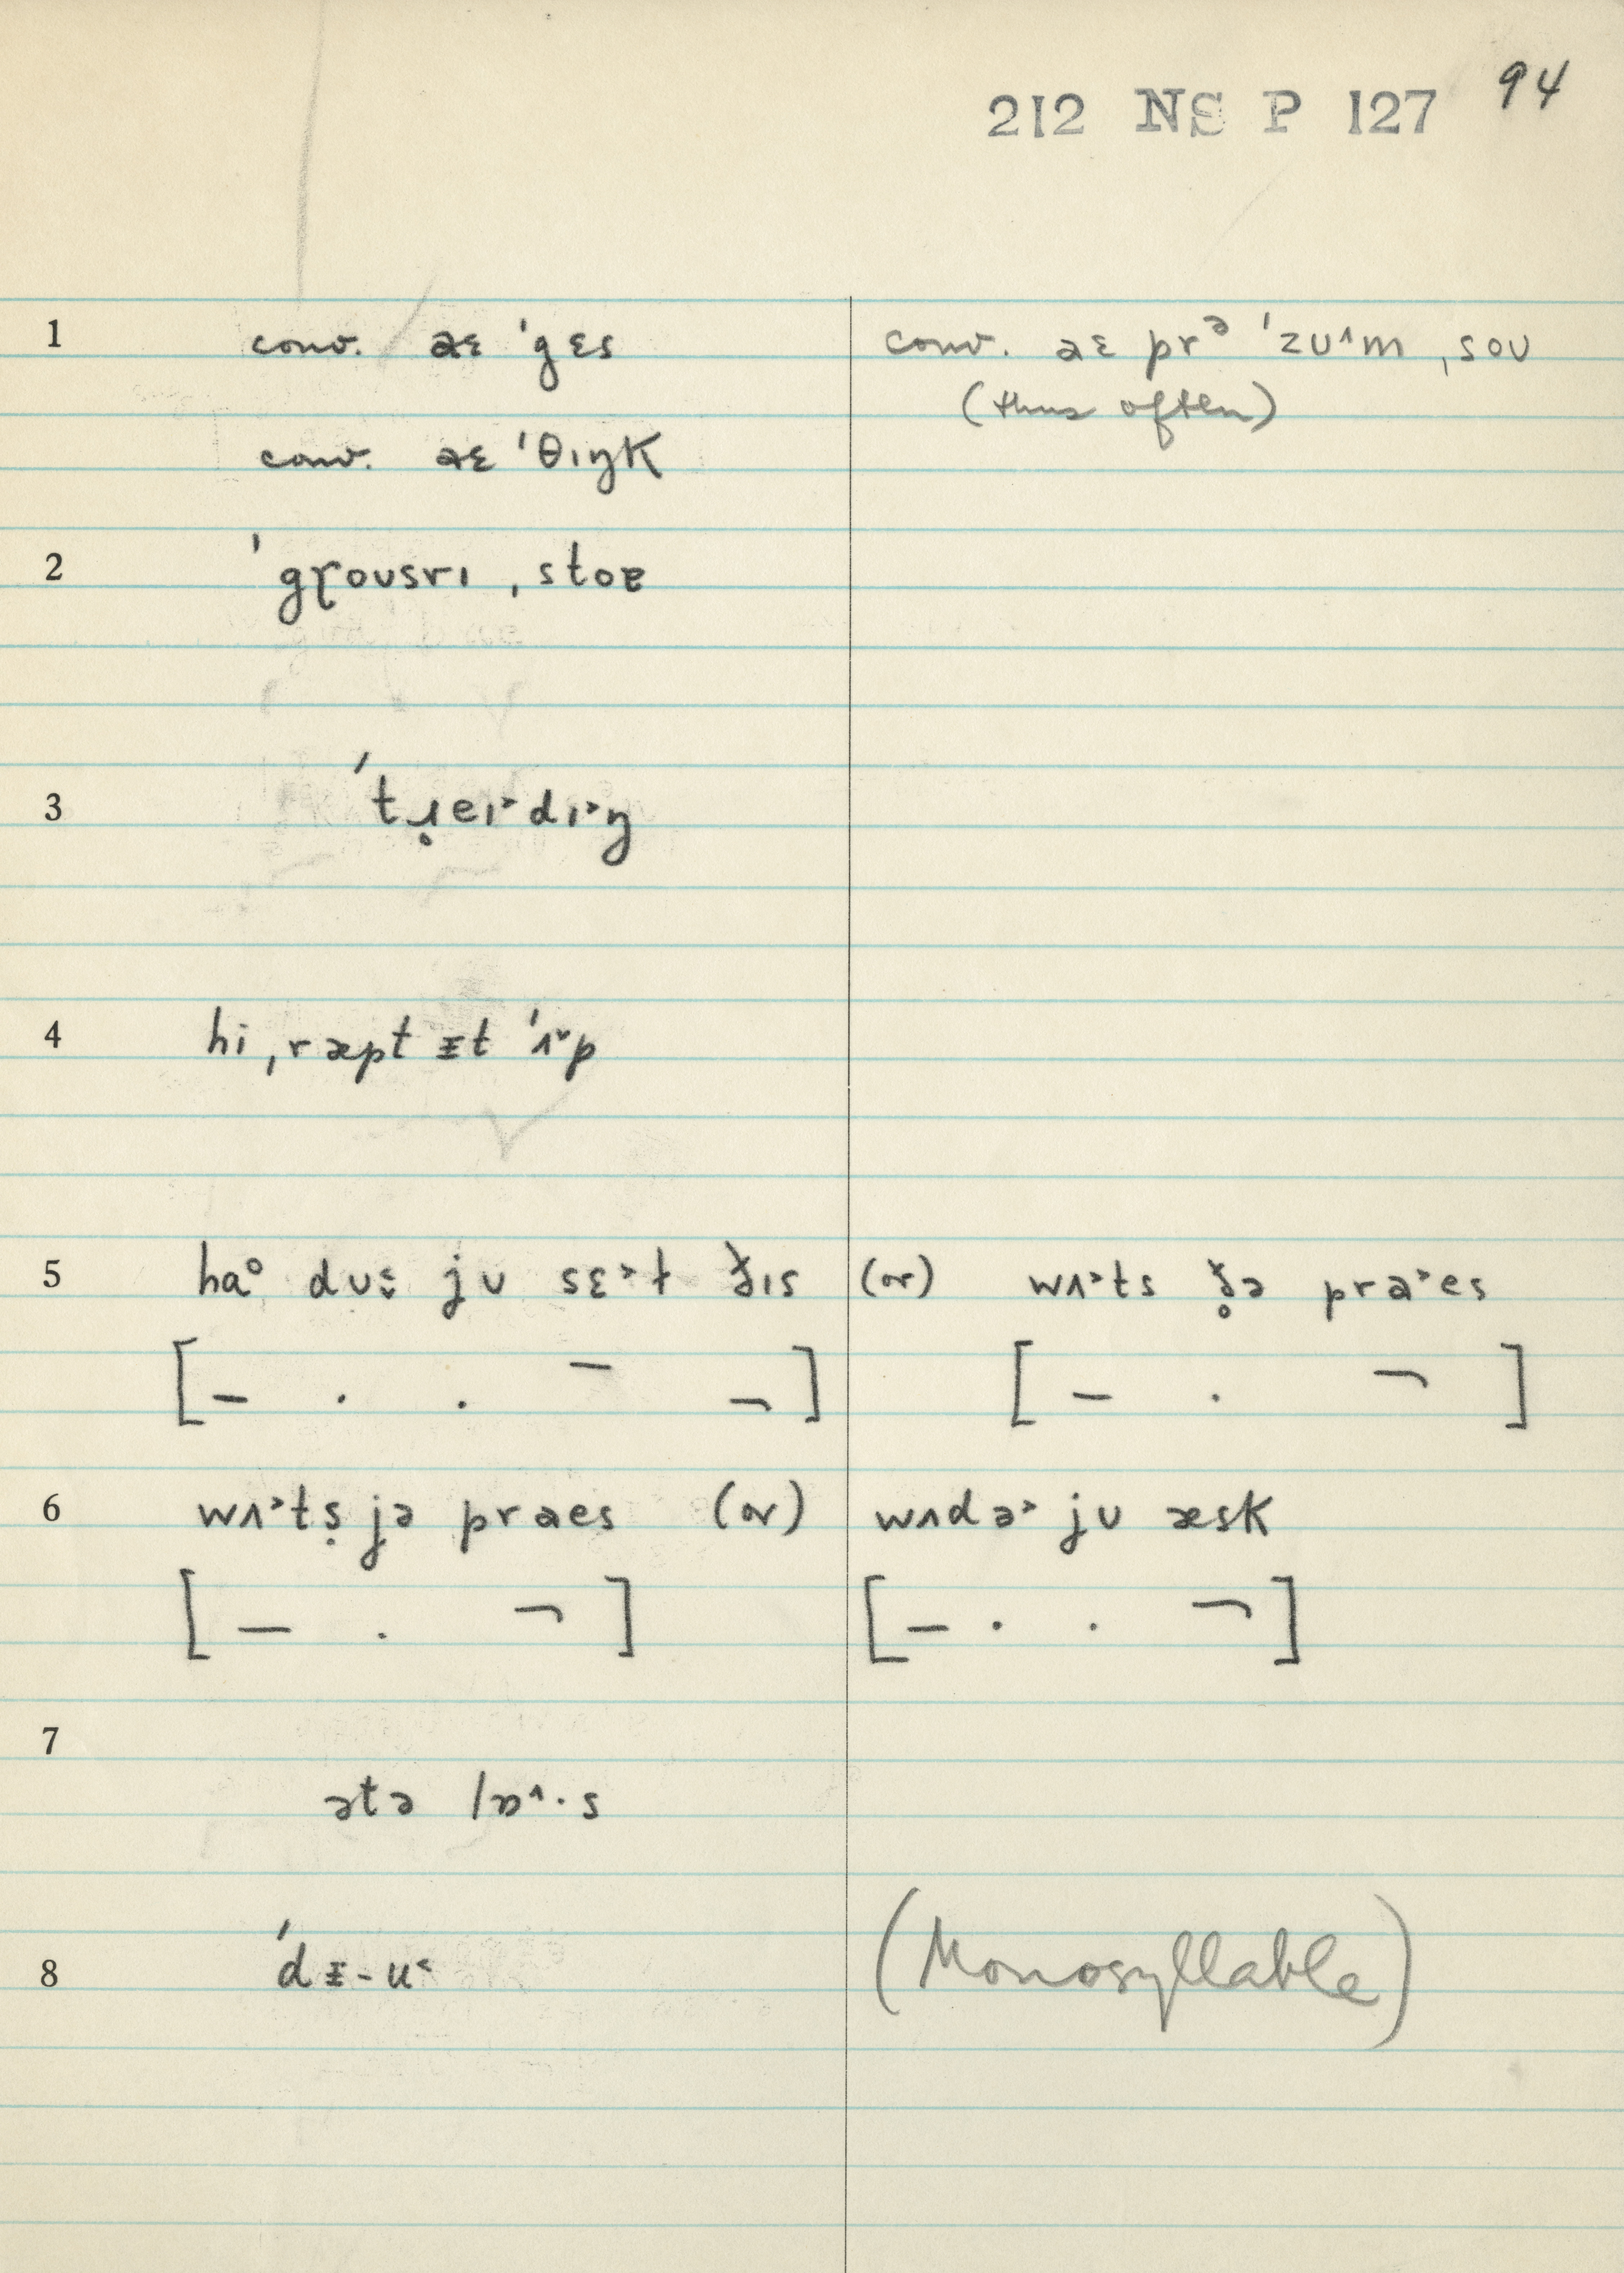 212 NS P 127 94
1 conv. aɛ ˈgɛs conv. aɛ prᵊ ˈzʊ˄m ˌsoʊ
(thus often)
conv. aɛ ˈθɪŋk
2 ˈgɽoʊsrɪ ˌstoɐ
3 ˈtɹ̥eɪ˃dɪ˃ŋ
4 hi ˌræpt ᵻt ˈʌ˅p
5 ha° dʊ ju sɛ˃t ðɪs (or) wʌ˃ts ð̥ə pra˃es
[– . . – ¬] [– . ¬]
6 wʌ˃tṣ jə praes (or) wʌdə˃ jʊ æsk
[– . ¬] [– . . ¬]
7
ətə lɒ˄·s
8 ˈdᵻ-u˂ (Monosyllable)